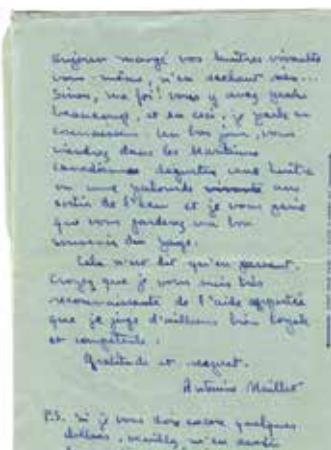 toujours mangé vos huîtres vivantes
vous-même, n'en sachant rien...
Sinon, ma foi! vous y avez perdu
beaucoup, et en ceci, je parle en
connaisseur. Un bon jour, vous
viendrez dans les Maritimes
canadiennes déguster une huître
ou une palourde au
sortir de l'eau et je vous parie
que vous garderez un bon
souvenir du
Cela n'est dit qu'en passant.
Croyez que je vous suis très
reconnaissante de l'aide apportée
que je juge d'ailleurs bien loyale
et compétente.
Gratitude et respect.
Antonine Maillet
P.S. Si je vous dois encore quelques
dollars, veuillez m'en avertir